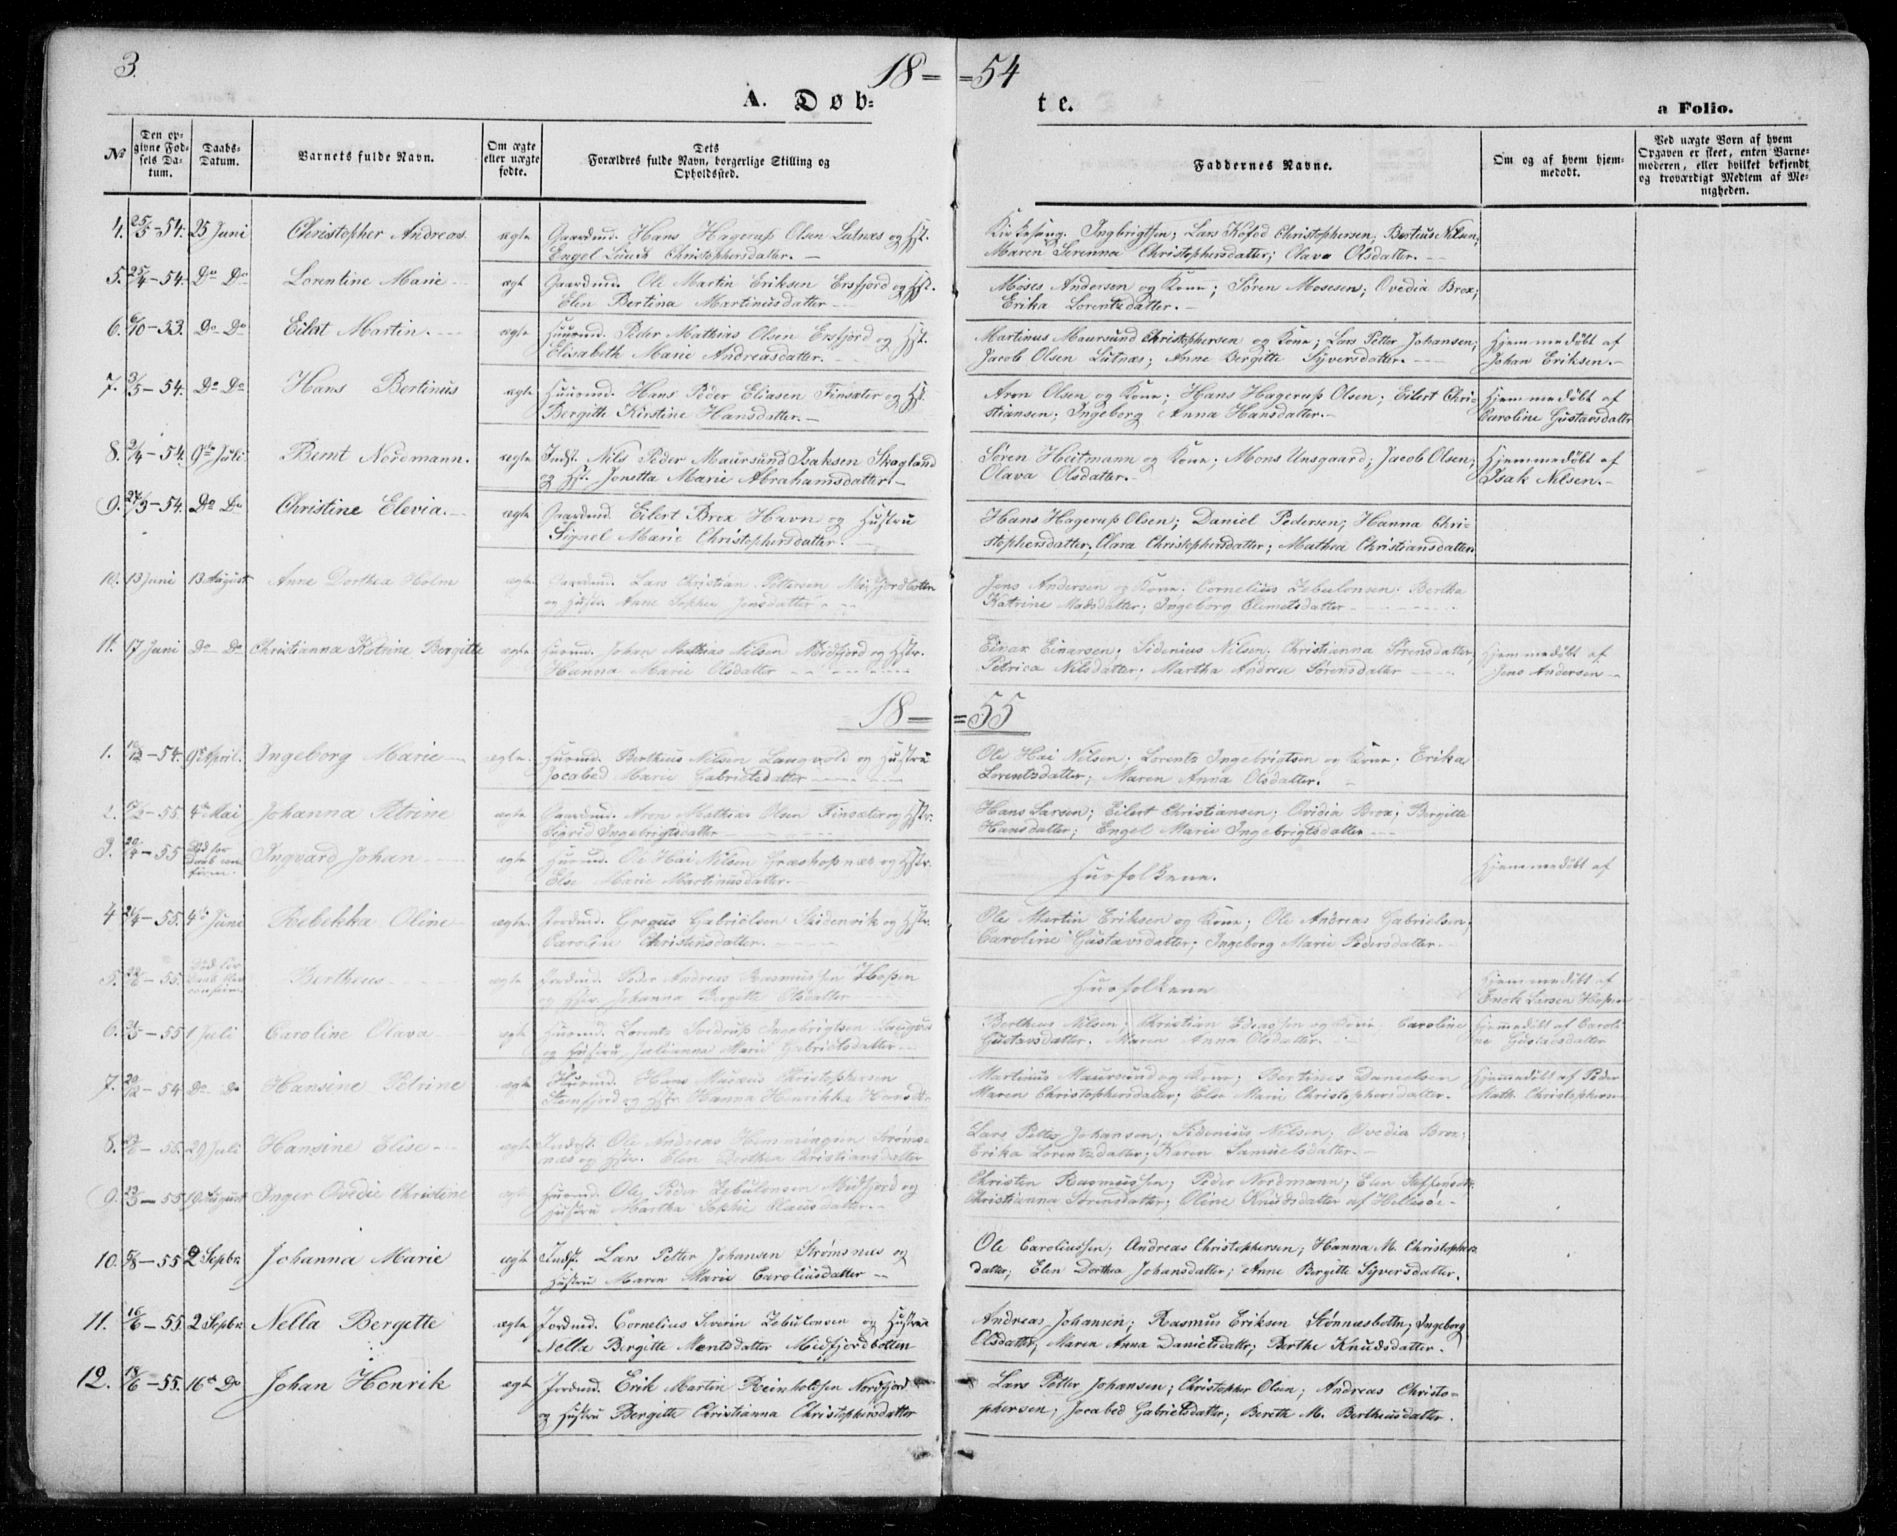 3.
18 = = 54
A. Døb= te. a Folio.
No
Den opgivne Fødsels Datum.
Daabs-Datum.
Barnets fulde Navn.
Om ægte eller uægte fødte.
Dets Forældres fulde Navn, borgerlige Stilling og Opholdssted.
Faddernes Navne.
Om og af hvem hjemmedøbt.
Ved uægte Børn af hvem Opgaven er skeet, enten Barnemoderen, eller hvilket bekjendt og troværdigt Medlem af Menigheden.
4. 25/3-54. 25 Juni Christopher Andreas ægte Gaardmd. Hans Hagerup Olsen Lutnæs og Hst. Ingbrigtsen; Lars Kofod Christophersen; Bertius Nilsen;
Engel Christophersdatter. — Maren Serenna Christophersdatter; Olava Olsdatter. —
5. 25/4-54. Do Do Lorentine Marie ægt Gaardmd. Ole Martin Eriksen Ersfjord og Hst. Moses Andersen og Kone; Søren Mosesen; Ovedia Brox;
Elen Bertina Martinusdatter Erika Lorentzdatter. —
6. 6/10-53. Do Do Eilert Martin. ægte Huusmd. Peder Mathias Olsen Ersfjord og Hst. Martinus Maursund Christophersen og Kone; Lars Petter Johansen; Hjemmedøbt af
Elisabeth Marie Andreasdatter. Jacob Olsen Lutnæs; Anne Bergitte Syversdatter. Johan Eriksen. —
7. 3/5-54. Do Do Hans Bertinus ægte Huusmd. Hans Peder Eliasen Finsæter og Hst. Aron Olsen og Kone; Hans Hagerup Olsen; Eilert Chri- Hjemmedøbt af
Bergitte Kirstine Hansdatter. — stiansen; Ingeborg Anna Hansdatter. — Caroline Gustavsdatter
8. 2/4-54. 9de Juli Bernt Nordmann. ægte Indst. Nils Peder Maursund Isaksen Skagland Søren Heitmann og Kone; Mons Unsgaard; Jacob Olsen; Hjemmedøbt af
og Hst. Jonetta Marie Abrahamsdatter. — Olava Olsdatter. — Isak Nilsen. —
9. 27/3-54. Do Do Christine Elevia. ægte Gaardmd. Eilert Brox Havn og Hustru Hans Hagerup Olsen; Daniel Pedersen; Hanna Chri-
Signel Marie Christophersdatter. stophersdatter; Clara Christophersdatter; Mathea Christiansdatter
10. 13 Juni 13 August Anne Dorthea Holm ægte Gaardmd. Lars Christian Pettersen Meifjordbotten Jens Andersen og Kone; Cornelius Zebulonsen; Bertha
og Hustru Anne Sophie Jensdatter Katrine Madsdatter; Ingeborg Clemetsdatter
11. 17 Juni Do Do Christianna Katrine Bergitte ægte Huusmd. Johan Mathias Nilsen Meidfjord og Hstr. Einar Einarsen; Sidenius Nilsen; Christianna Sørensdatter; Hjemmedøbt af
Hanna Marie Olsdatter Petrica Nilsdatter; Martha Andrea Sørensdatter Jens Andersen
18 = = 55
1. /12-54. 9de April. Ingeborg Marie ægte. Huusmd. Bertheus Nilsen Langvold og Hustru Ole Hai Nilsen; Lorents Ingebrigtsen og Kone; Erika
Jocabed Marie Gabrielsdatter Lorentzdatter; Maren Anna Olsdatter.
2. /2-55 4de Mai Johanna Petrine ægte Gaardmd. Aron Mathias Olsen Finsæter og Hstr. Hans Larsen; Eilert Christiansen; Ovidia Brox; Bergitte
Sigrid Ingebrigtsdatter Hansdatter; Engel Marie Ingebrigtsdatter
3. 20/4-55 Død før Daab confirm. Ingvard Johan ægte Huusmd. Ole Hai Nilsen Græshopnæs og Hstr. Husfolkene. Hjemmedøbt af
Else Marie Martinusdatter. —
4 21/4-55. 4de Juni Rebekka Oline ægte. Jordmd. Gregus Gabrielsen Skidenvik og Hstr. Ole Martin Eriksen og Kone; Ole Andreas Gabrielsen;
Caroline Christensdatter. Caroline Gustavsdatter; Ingeborg Marie Pedersdatter.
5. 22/6-55. Død før Bertheus ægte Jordmd. Peder Andreas Rasmussen Hopen Husfolkene Hjemmedøbt af
og Hstr. Johanna Bergitte Olsdatter Enok Larsen Hopen
6. 3/5-55 1 Juli Caroline Olava ægt Huusmd. Lorents Sverdrup Ingebrigtsen Bertheus Nilsen; Christian og Kone; Caroline Hjemmedøbt af Caroli-
og Hustru Julianna Marie Gabrielsdatter Gustavsdatter. Maren Anna Olsdatter. ne Gustavsdatter
7. 20/12-54 Do Do Hansine Petrine ægte Huusmd. Hans Christophersen Martinus Maursund og Kone; Bertinus Danielsen Hjemmedøbt af Peder
Steinfjord og Hstr. Hanna Henrikka Hansdtr Maren Christophersdatter; Else Marie Christophersdatter. Math. Christophersen
8. /6-55. 29 Juli Hansine Elise ægte Indst. Ole Andreas Hemmingsen Strøms- Lars Petter Johansen; Sidenius Nilsen; Ovedia Brox;
næs og Hstr. Elen Dorthea Christiansdatter Erika Lorentzdatter; Karen Samuelsdatter.
9. 23/3-55 19 August Inger Ovedie Christine ægte Huusmd. Ole Peder Zebulonsen Midfjord og Christen Rasmussen; Peder Nordmann; Elen
Hustru Martha Sophie Clausdatter. Christianna Sørensdatter; Oline Knudsdatter af Hellesøe
10. 5/8-55 2 Septbr. Johanna Marie ægte Indst. Lars Petter Johansen Strømsnæs og Ole Caroliussen; Andreas Christophersen; Hanna M. Christophers-
Hustru Maren Marie Caroliusdatter datter; Elen Dorthea Johansdatter; Anne Bergitte Syversdatter.
11. 16/6-55. 2 Septbr. Nella Bergette ægte Jordmd. Cornelius Severin Zebulonsen og Hustru Andreas Johansen; Rasmus Eriksen Stønnesbotn; Ingeborg
Nella Bergitte Mentsdatter Midfjordbotten Olsdatter; Maren Anna Danielsdatter; Berthe Knudsdatter.
12. /6-55. 16de Do Johan Henrik ægt Jordmd. Erik Martin Reinholdsen Nordfjord Lars Petter Johansen; Christopher Olsen; Andreas Christo-
og Hustru Bergitte Christianna Christophersdatter phersen; Jocabed Gabrielsdatter; Bereth M. Bertheusdatter.